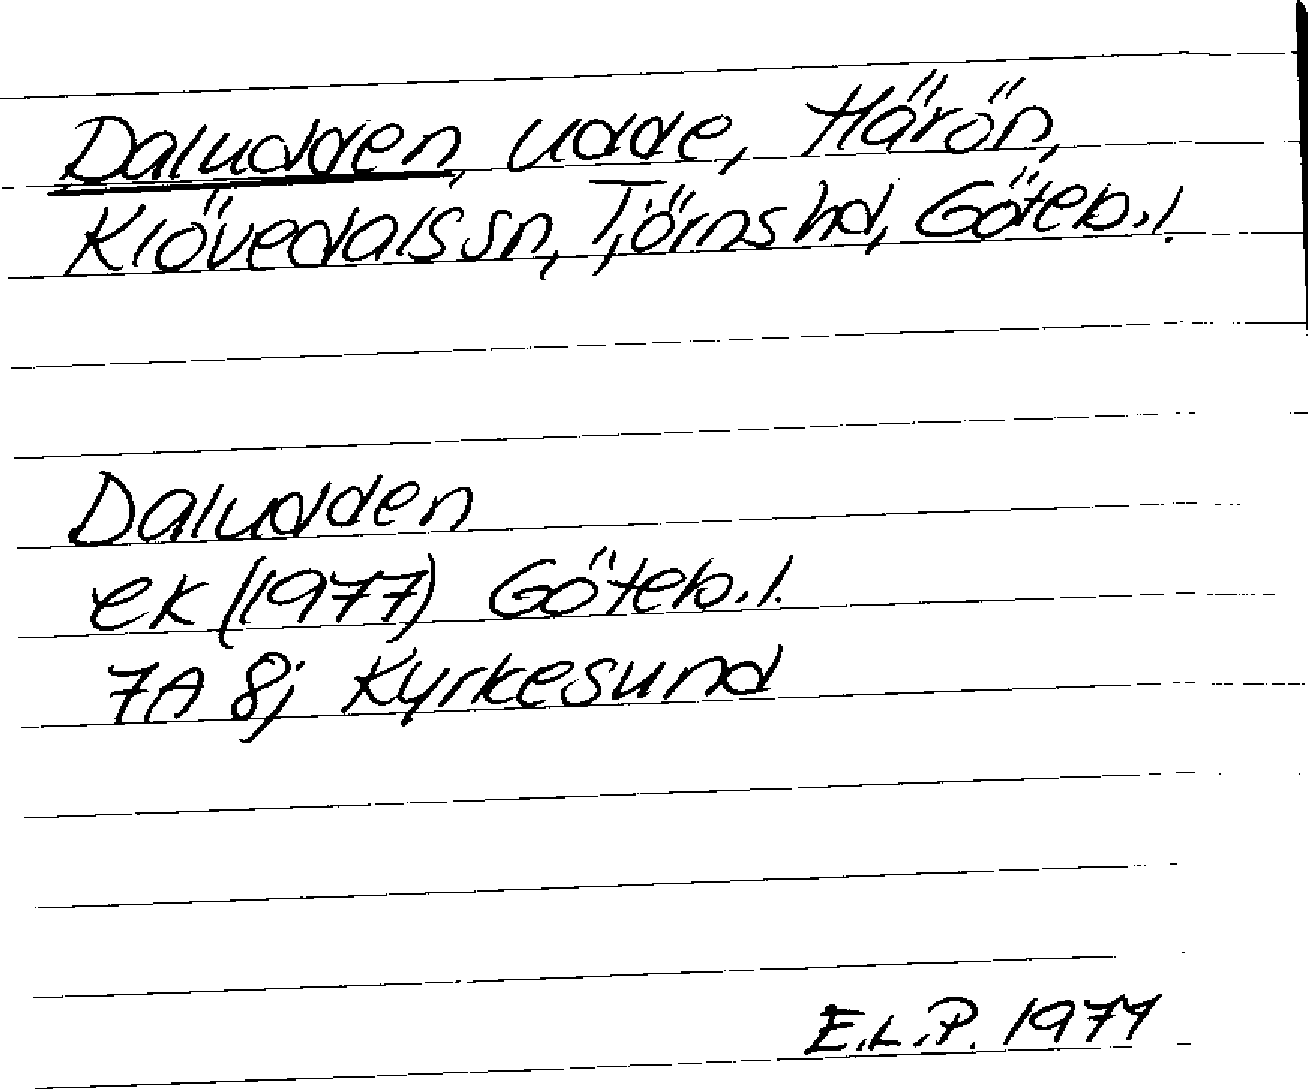 Daludden, udde, Härön,
Klövedals sn, Tjörns hd, Göteb.l.
Daludden
ek (1977) Göteb.l.
7A 8j Kyrkesund
E.L.P. 1977